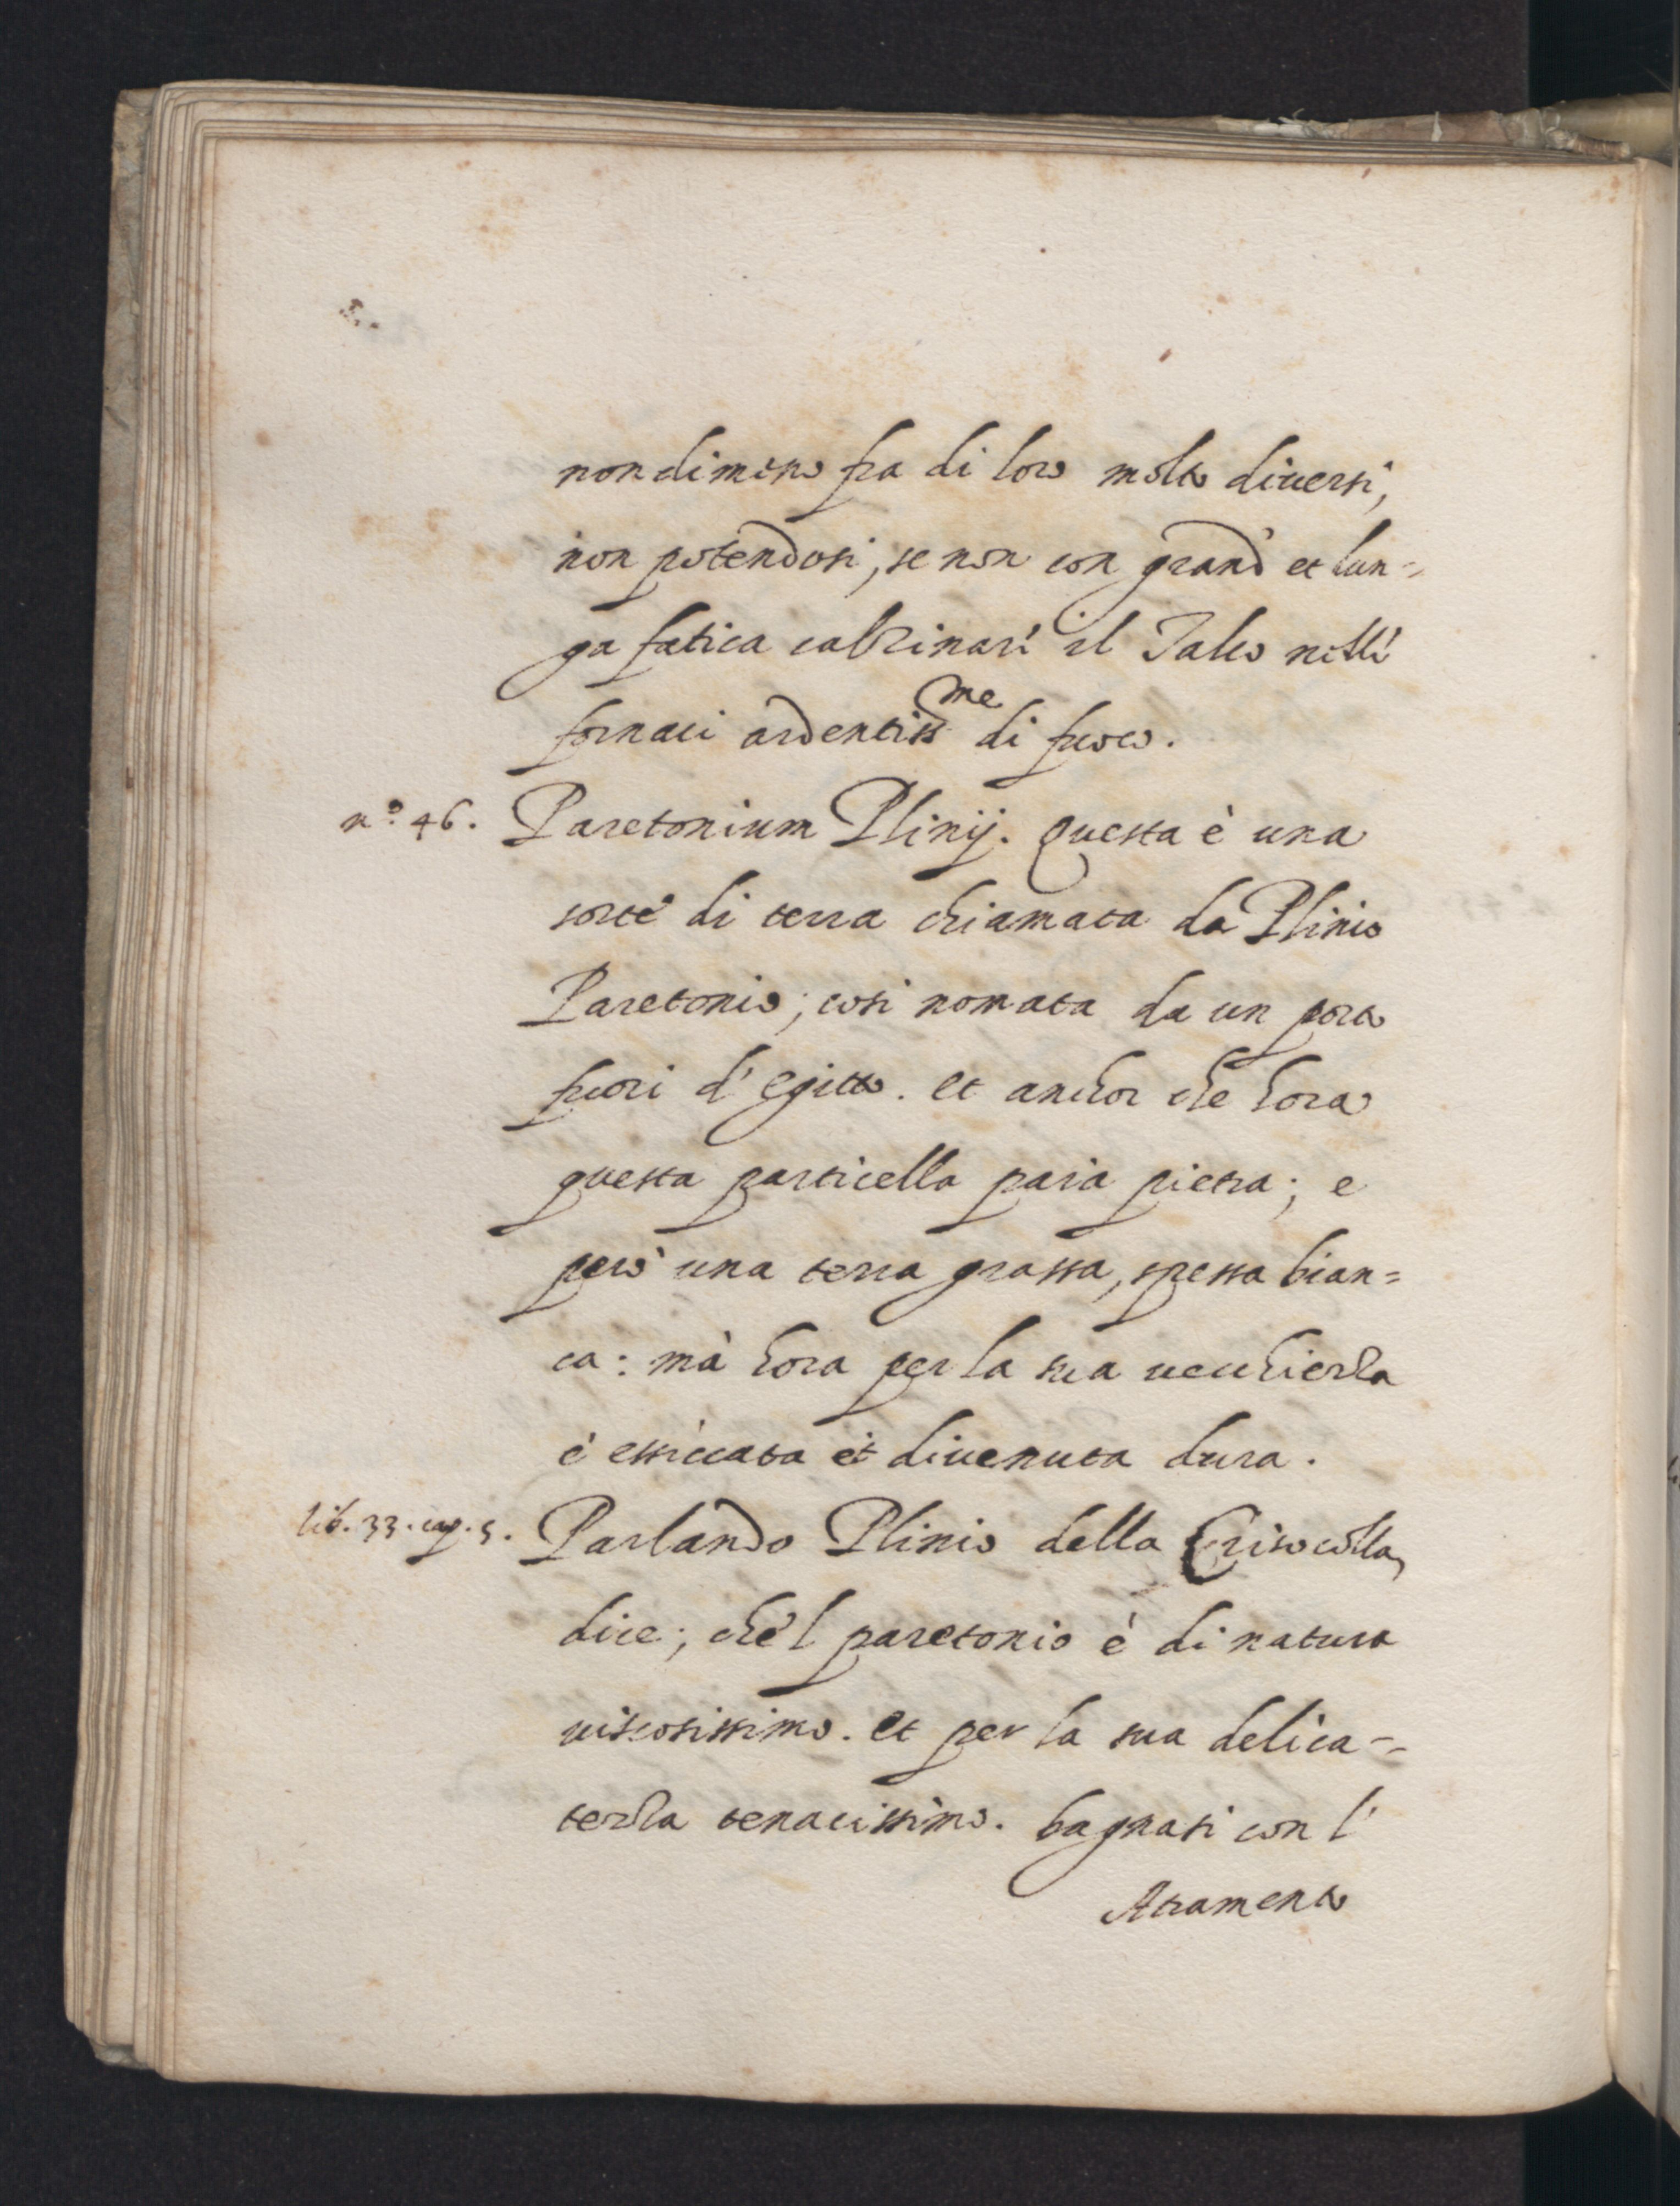 nondimeno fra di loro molto diuersi,
non potendosi, se non con grand et lun=
ga fatica calzinari il Talco nelli
fornaci ardentiss.me di fuoco.
nº. 46. Paretonium Plinij. Questa è una
sorte di terra chiamata da Plinio
Paretonio; cosi nomata da un porto
fuori d'Egitto. et anchor che hora
questa particella paia pietra; e
però una terra grassa, spessa bian=
ca: mà hora per la sua uecchiezza
è essiccata et diuenuta dura.
lib. 33. cap. 5. Parlando Plinio della Crisocolla,
dice; che'l paretonio è di natura
uiscosissimo. et per la sua delica=
tezza tenacissimo. bagnasi con l'
Atramento